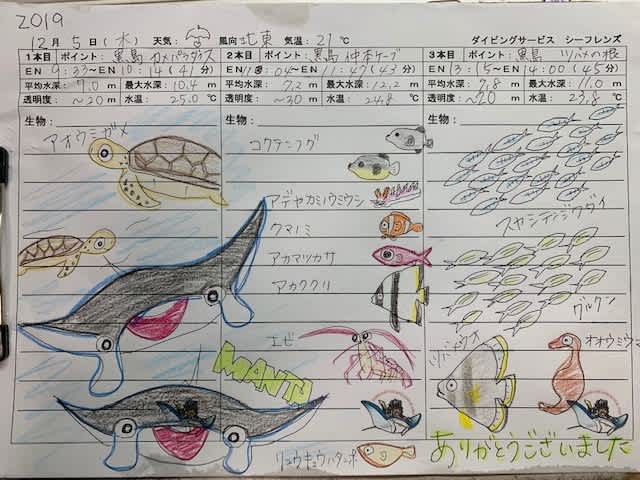 2019
12月 5日(水) 天気: 風向 北東 気温: 21 ℃ ダイビングサービス シーフレンズ
1本目 ポイント: 黒島 カメパラダイス
EN 9:33～EN 10:14 (41分)
平均水深: 7.0 m 最大水深: 10.4 m
透明度: ～20 m 水温: 25.0 ℃
生物:
アオウミガメ
2本目 ポイント: 黒島 仲本ケーブ
EN 11:04～EN 11:47 (43分)
平均水深: 7.2 m 最大水深: 12.2 m
透明度: ～30 m 水温: 24.8 ℃
生物:
コクテンフグ
アデヤカミノウミウシ
クマノミ
アカマツカサ
アカククリ
エビ
MANTA
リュウキュウハタンポ
3本目 ポイント: 黒島 ツバメの根
EN 13:15～EN 14:00 (45分)
平均水深: 7.8 m 最大水深: 11.0 m
透明度: ～20 m 水温: 23.8 ℃
生物:
スヤシテンジクダイ
グルクン
ツバメウオ
オオウミウマ
ありがとうございました